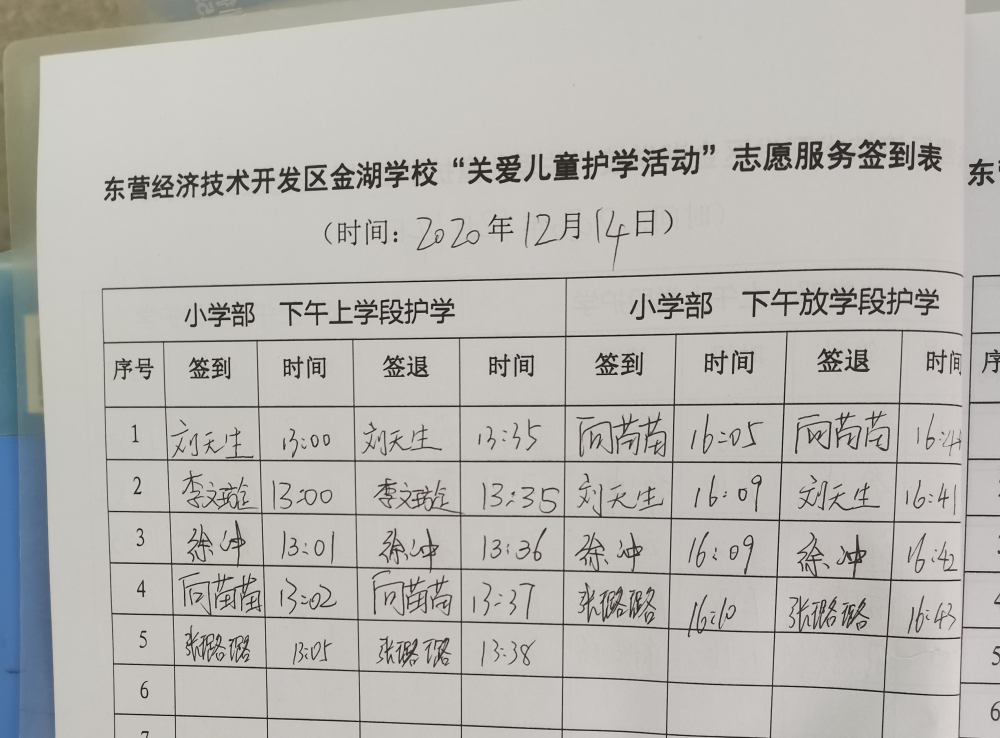 东营经济技术开发区金湖学校“关爱儿童护学活动”志愿服务签到表
（时间：2020年12月14日）
小学部 下午上学段护学 小学部 下午放学段护学
序号 签到 时间 签退 时间 签到 时间 签退 时间
1 刘天生 13:00 刘天生 13:35 向苗苗 16:05 向苗苗
2 李文璇 13:00 李文璇 13:35 刘天生 16:09 刘天生 16:41
3 徐冲 13:01 徐冲 13:36 徐冲 16:09 徐冲 16:42
4 向苗苗 13:02 向苗苗 13:37 张璐璐 16:10 张璐璐 16:43
5 张璐璐 13:05 张璐璐 13:38
6